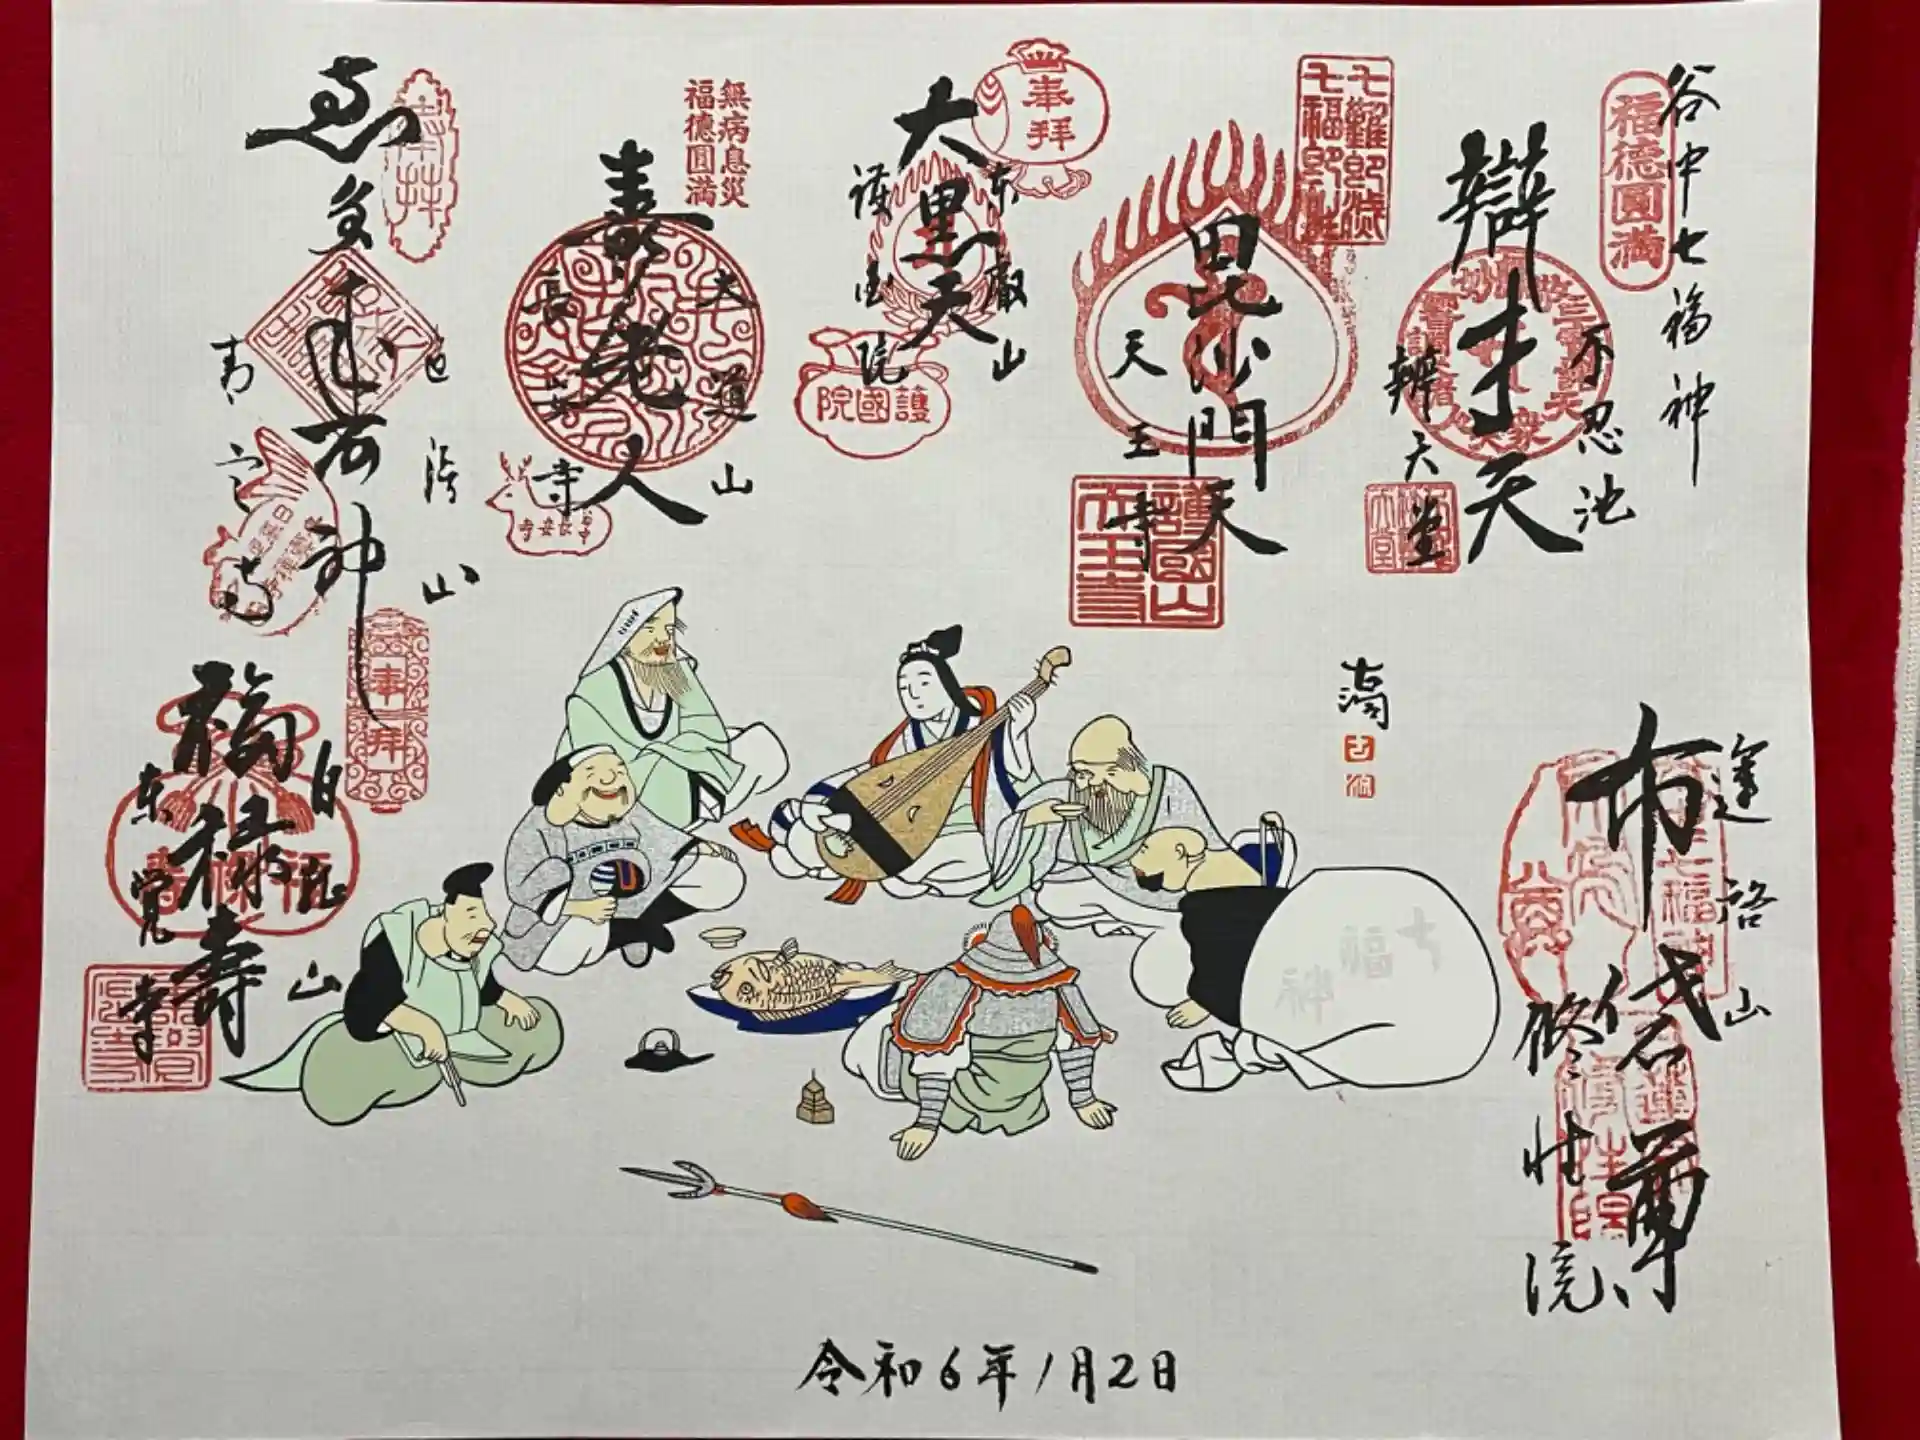 谷中七福神
福徳圓満
不忍池
辯才天
辨天堂
七難即滅
七福即生
毘沙門天
天王寺
護國山
天王寺
奉拝
東叡山
大黒天
護国院
護國院
無病息災
福徳圓満
大道山
寿老人
長安寺
谷中
長安寺
奉拝
山
神
青雲寺
奉拝
日照山
福禄寿
東覚寺
福禄寿
七福神
山
布袋尊
修性院
令和6年1月2日